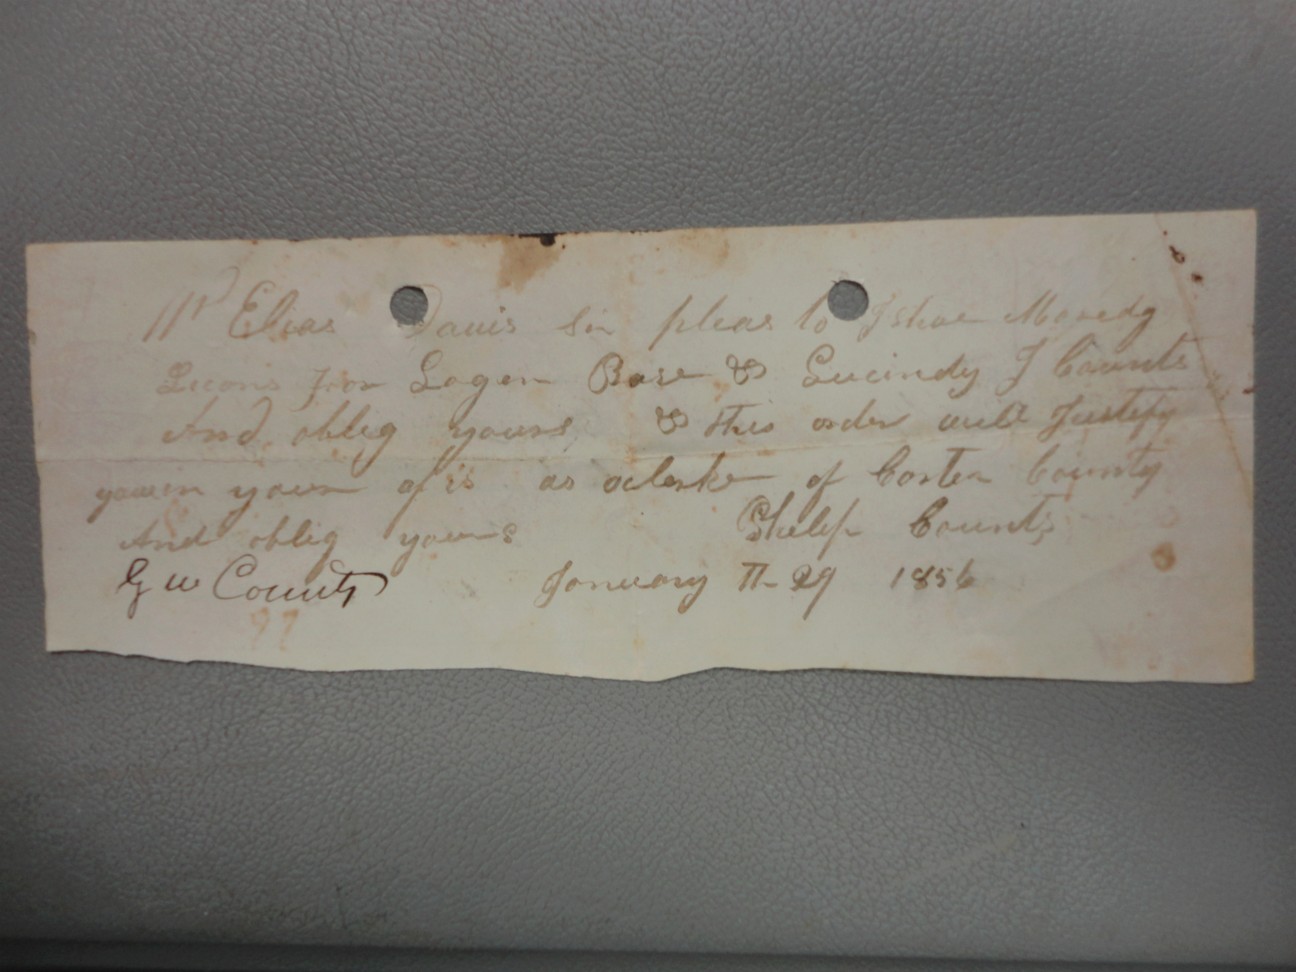 Mr Elias Davis Sir pleas to Ishue Maredg
Licons for Logen Base & Lucindy J Counts
And oblig yours, & this order will Justify
you in your ofis as aclerke of Carter County
And oblig yours Philip Counts
G W Counts January 29 1856
97